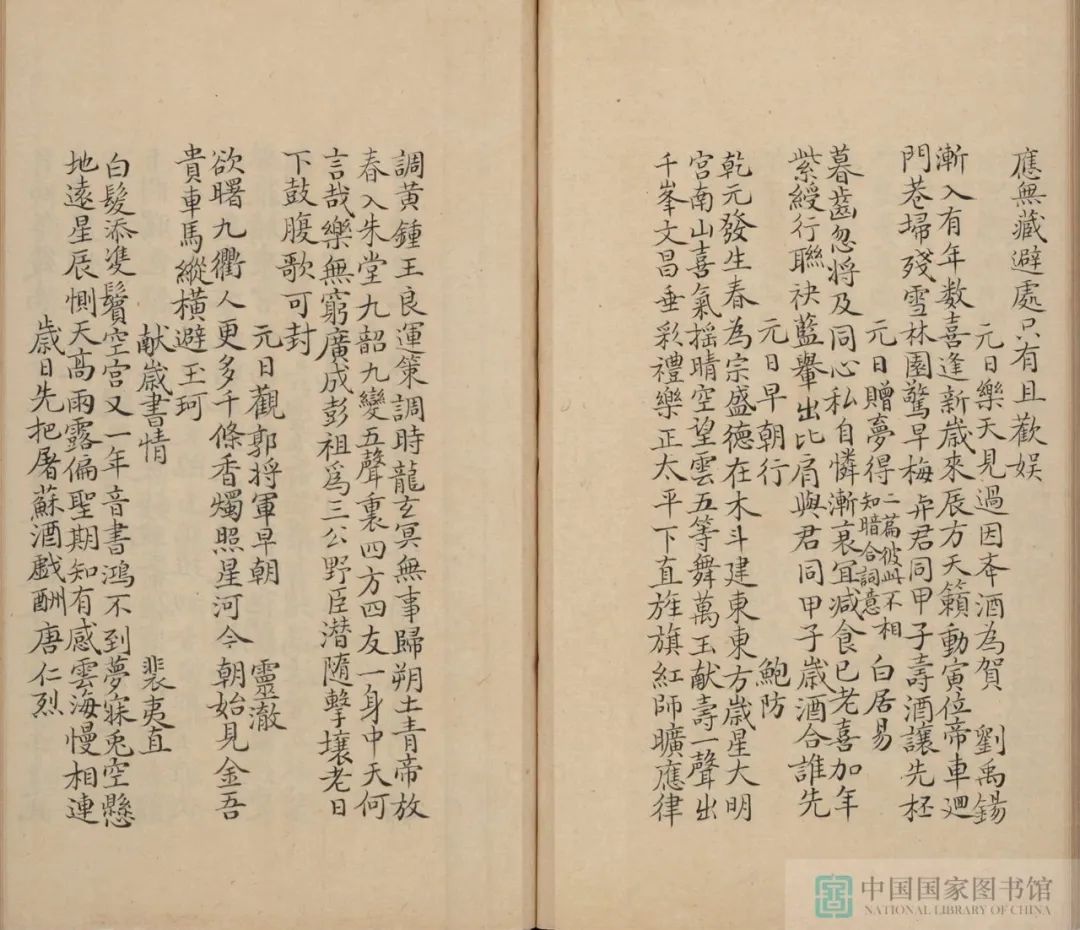 應無藏避處只有且歡娱
元日樂天見過因奉酒為賀 劉禹錫
漸入有年数喜逢新歳來辰方天籟動寅位帝車廻
門巷埽殘雪林園驚早梅與君同甲子壽酒讓先杯
元日贈夢得 二篇彼此不相知暗合詞意 白居易
暮齒忽將及同心私自憐漸衰冝减食已老喜加年
紫綬行聯袂藍轝出比肩與君同甲子歳酒合誰先
元日早朝行 鮑防
乾元發生春為宗盛德在木斗建東東方歳星大明
宮南山喜氣揺晴空望雲五等舞萬玉献壽一聲出
千峯文昌垂彩禮樂正太平下直旌旗紅師曠應律
調黄鍾王良運策調時龍玄冥無事歸朔土青帝放
春入朱堂九韶九變五聲裏四方四友一身中天何
言哉樂無窮廣成彭祖爲三公野臣潜随擊壤老日
下鼓腹歌可封
元日觀郭將軍早朝 靈澈
欲曙九衢人更多千條香燭照星河今朝始見金吾
貴車馬縱横避玉珂
献歳書情 裴夷直
白髮添雙鬢空宮又一年音書鴻不到夢寐兎空懸
地遠星辰惻天高雨露偏聖期知有感雲海慢相連
歳日先把屠蘇酒戲酬唐仁烈
中国国家图书馆
NATIONAL LIBRARY OF CHINA